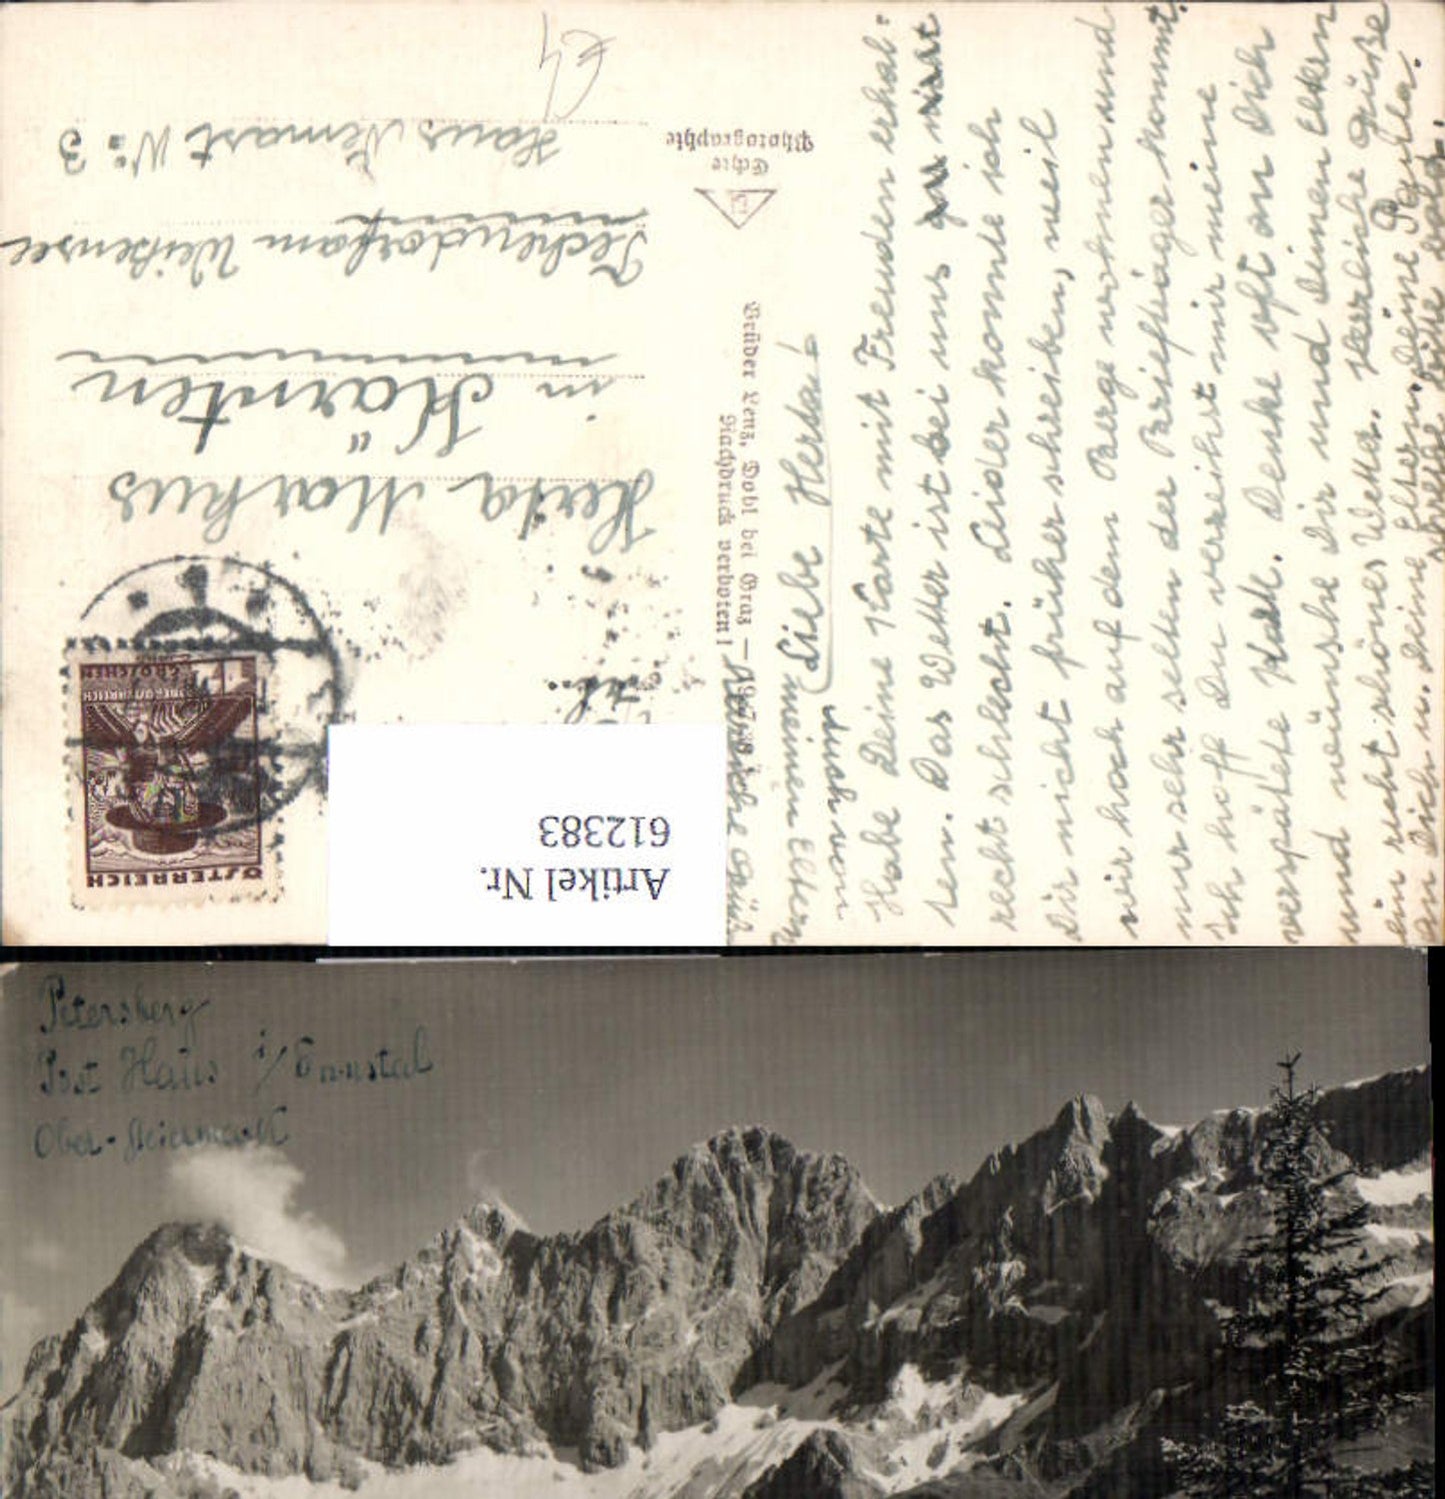 Liebe Herta!
Habe Deine Karte mit Freuden erhal-
ten. Das Wetter ist bei uns
recht schlecht. Leider konnte ich
Dir nicht früher schreiben, weil
wir hoch auf dem Berge wohnen und
nur sehr selten der Briefträger kommt.
Ich hoff Du verzeihst mir meine
verspätete Denke oft an Dich
und wünsche Dir und Deinen Eltern
ein recht schönes Herzliche Grüße
an Dich u. Deine Eltern Deine Paula.
schreibe bitte bald.
meinen Eltern
Brüder Lenz, Dobl bei Graz – 19
Nachdruck verboten!
Echte
Photographie
Herta Markus
in Kärnten
Techendorf am Weißensee
Haus Nr: 3
€4
ÖSTERREICH
GROSCHEN
Artikel Nr.
612383
Petersberg
Post Haus i/Ennstal
Ober-Steiermark